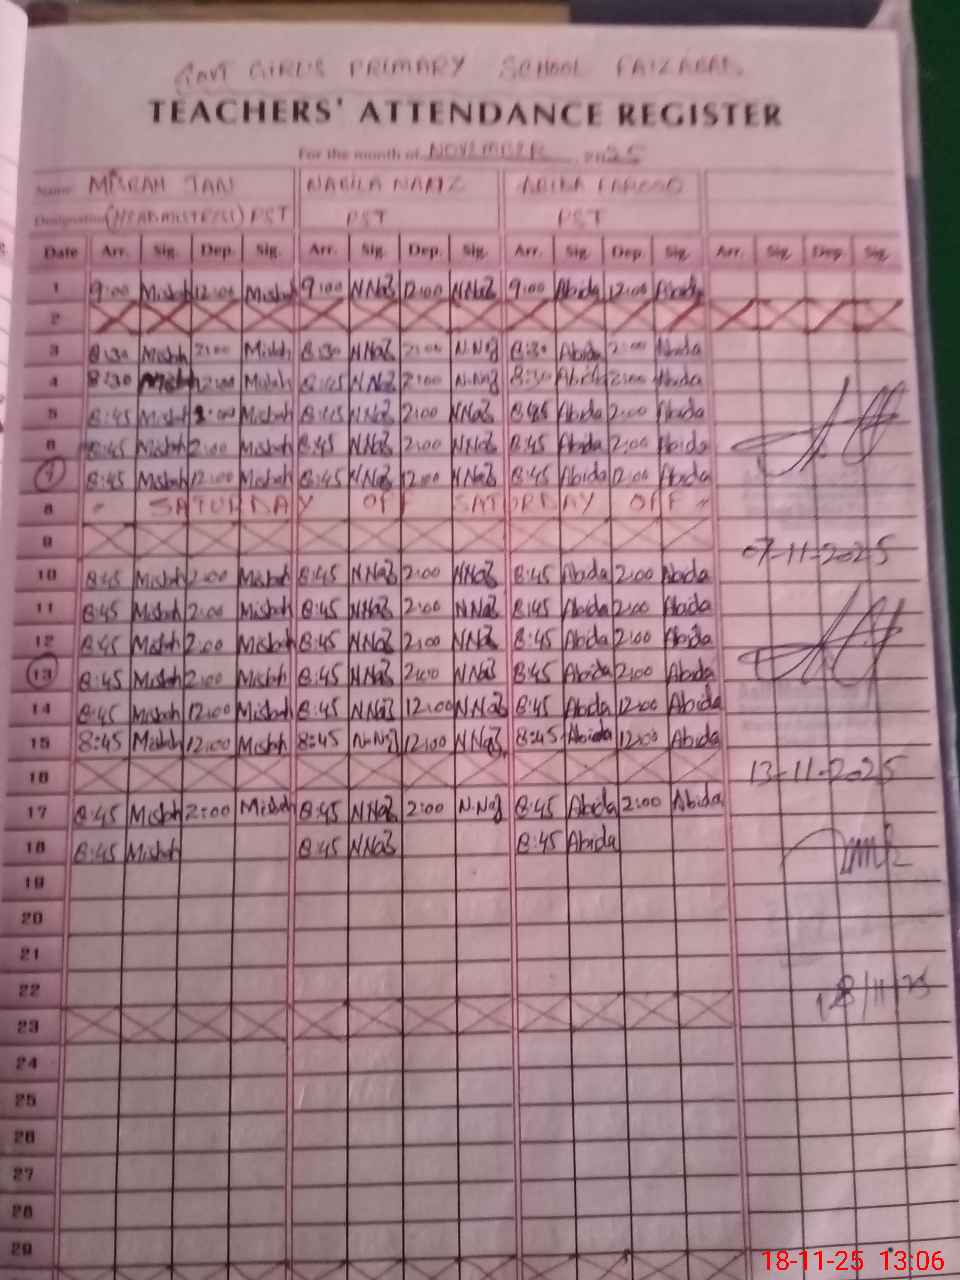 GOVT GIRLS PRIMARY SCHOOL FAIZABAD
TEACHERS' ATTENDANCE REGISTER
For the month of NOVEMBER 2025
Name MISBAH JAN NABILA NAAZ ABIDA FAROOQ
Designation (HEADMISTRESS) PST PST PST
Date Arr. Sig. Dep. Sig. Arr. Sig. Dep. Sig. Arr. Sig. Dep. Sig. Arr. Sig. Dep. Sig.
1 9:00 Misbah 12:00 Misbah 9:00 NNaz 12:00 NNaz 9:00 Abida 12:00 Abida
2
3 8:30 Misbah 2:00 Misbah 8:30 NNaz 2:00 N.Naz 8:30 Abida 2:00 Abida
4 8:30 Misbah 2:00 Misbah 8:45 NNaz 2:00 N.Naz 8:30 Abida 2:00 Abida
5 8:45 Misbah 2:00 Misbah 8:45 NNaz 2:00 NNaz 8:45 Abida 2:00 Abida
6 8:45 Misbah 2:00 Misbah 8:45 NNaz 2:00 NNaz 8:45 Abida 2:00 Abida
7 8:45 Misbah 12:00 Misbah 8:45 NNaz 12:00 NNaz 8:45 Abida 12:00 Abida
8 " SATURDAY OFF SATURDAY OFF "
9
07-11-2025
10 8:45 Misbah 2:00 Misbah 8:45 NNaz 2:00 NNaz 8:45 Abida 2:00 Abida
11 8:45 Misbah 2:00 Misbah 8:45 NNaz 2:00 NNaz 8:45 Abida 2:00 Abida
12 8:45 Misbah 2:00 Misbah 8:45 NNaz 2:00 NNaz 8:45 Abida 2:00 Abida
13 8:45 Misbah 2:00 Misbah 8:45 NNaz 2:00 NNaz 8:45 Abida 2:00 Abida
14 8:45 Misbah 12:00 Misbah 8:45 NNaz 12:00 NNaz 8:45 Abida 12:00 Abida
15 8:45 Misbah 12:00 Misbah 8:45 N.Naz 12:00 NNaz 8:45 Abida 12:00 Abida
16
13-11-2025
17 8:45 Misbah 2:00 Misbah 8:45 NNaz 2:00 N.Naz 8:45 Abida 2:00 Abida
18 8:45 Misbah 8:45 NNaz 8:45 Abida
19
20
21
22
18/11/25
23
24
25
26
27
28
29
18-11-25 13:06